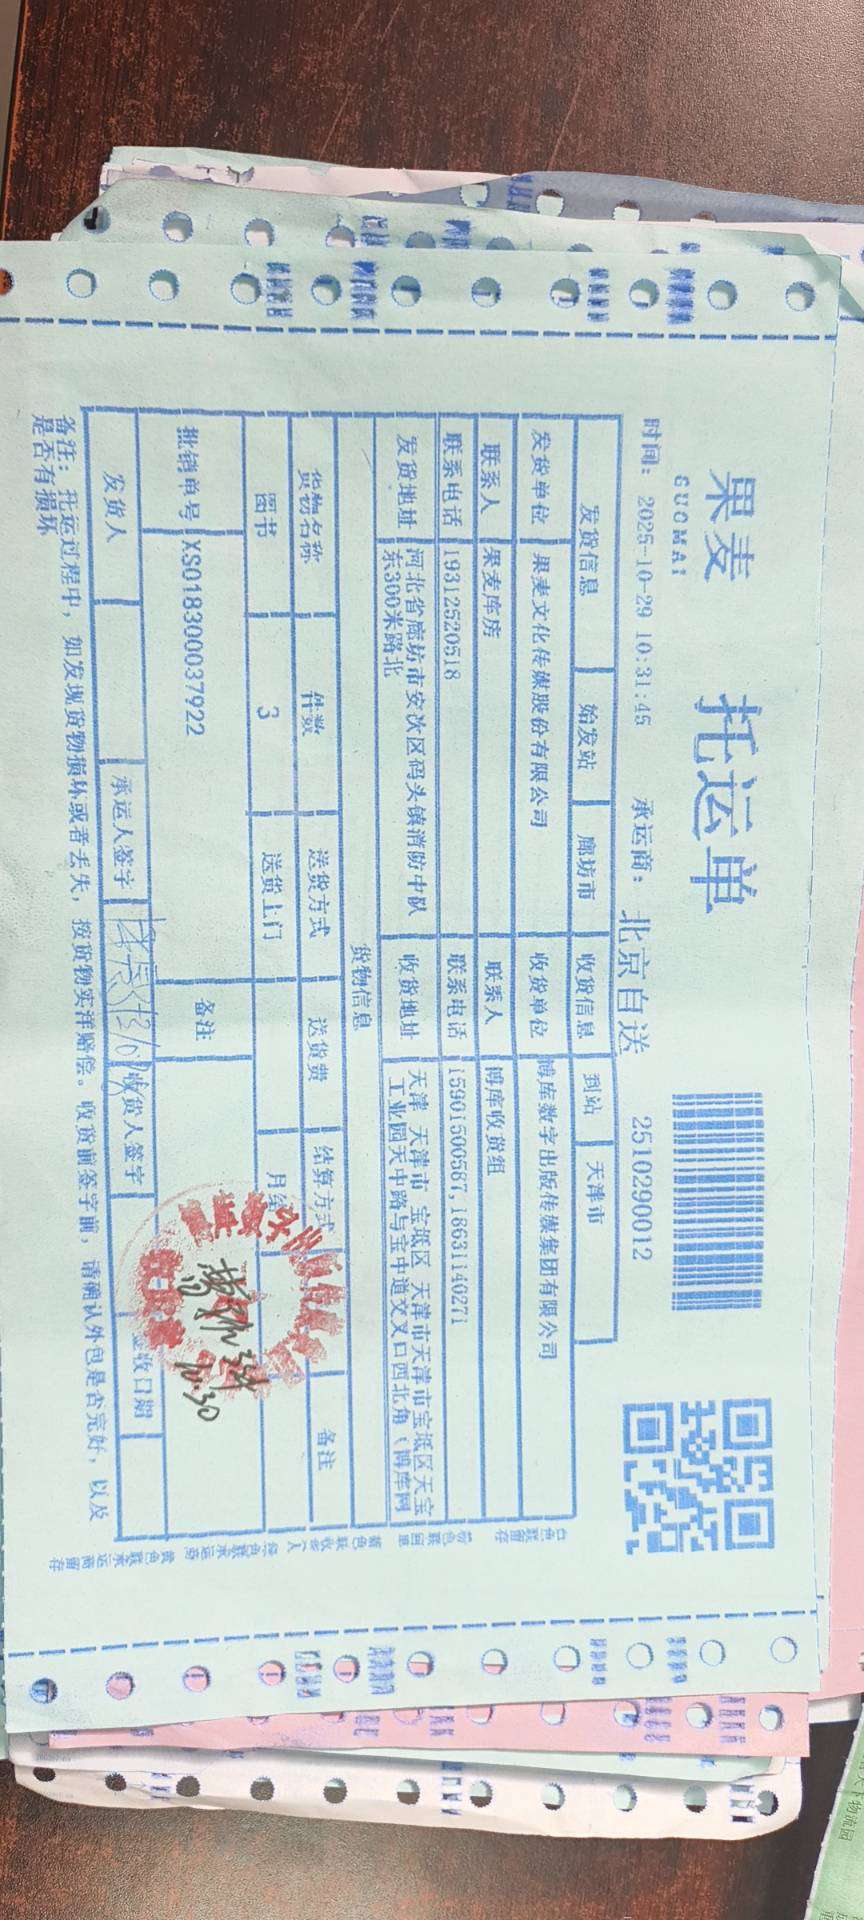 果麦
GUOMAI
托运单
时间: 2025-10-29 10:31:45 承运商: 北京自送 2510290012
发货信息 始发站 廊坊市 收货信息 到站 天津市
发货单位 果麦文化传媒股份有限公司 收货单位 博库数字出版传媒集团有限公司
联系人 果麦库房 联系人 博库收货组
联系电话 19312520518 联系电话 15901500587,18631140271
发货地址 河北省廊坊市安次区码头镇消防中队东300米路北 收货地址 天津 天津市 宝坻区 天津市天津市宝坻区天宝工业园天中路与宝中道交叉口西北角(博库网
货物信息
货物名称 件数 送货方式 送货费 结算方式 备注
图书 3 送货上门 月结
批销单号 XS018300037922 备注
发货人 承运人签字 收货人签字 签收日期
10:30
备注: 托运过程中, 如发现货物损坏或者丢失, 按货物实洋赔偿。收货前签字前, 请确认外包是否完好, 以及
是否有损坏
白色联留存 粉色联回单 蓝色联收货人 绿色联承运商 黄色联承运商留存